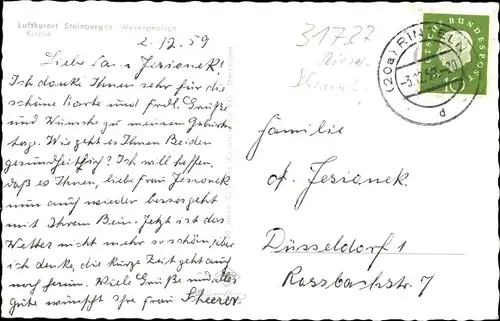 Luftkurort Steinbergen Wesergebirge
Kirche
2.12.59
Liebe Frau Jesionek!
Ich danke Ihnen sehr für die
schöne Karte und frdl. Grüße
und Wünsche zu meinem Geburts-
tage. Wie geht es Ihnen Beiden
gesundheitlich? Ich will hoffen,
daß es Ihnen, liebe Frau Jesionek
nun auch wieder besser geht
mit Ihrem Bein. Jetzt ist das
Wetter nicht mehr so schön, aber
ich denke, die kurze Zeit geht auch
noch herum. Viele Grüße und alles
Gute wünscht Ihre Frau Scheerer
31737
(20a) RINTELN
-3.12.59
d
DEUTSCHE BUNDESPOST
10
Familie
A. Jesionek
Düsseldorf 1
Rossbachstr. 7